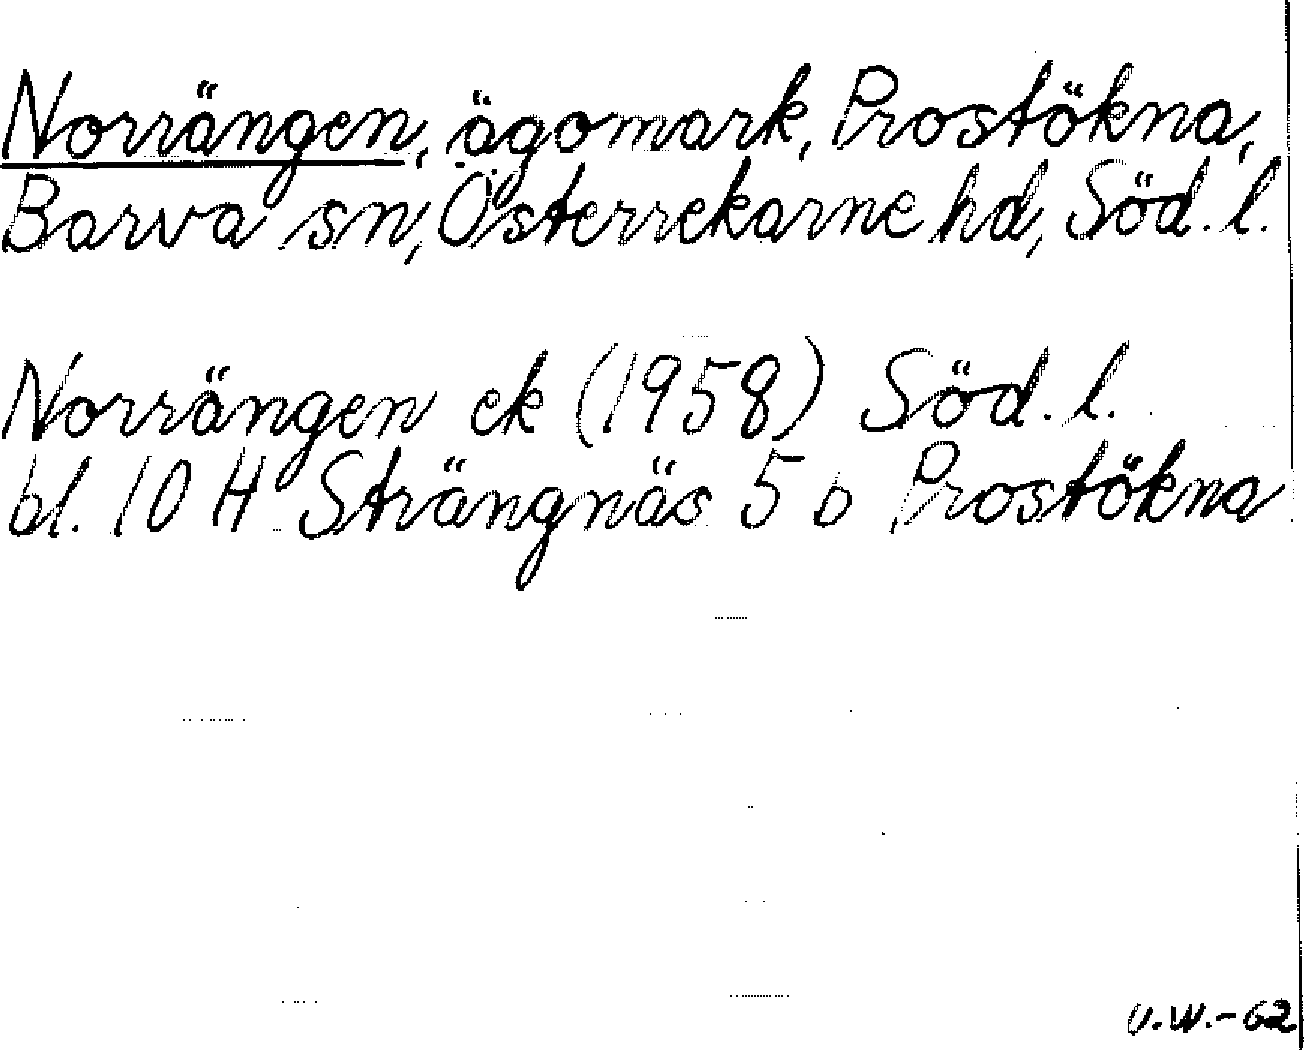 Norrängen, ägomark, Prostökna,
Barva sn, Österrekarne hd, Söd. l.
Norrängen ek (1958) Söd. l.
bl. 10 H Strängnäs 5 b Prostökna
U.W.-62